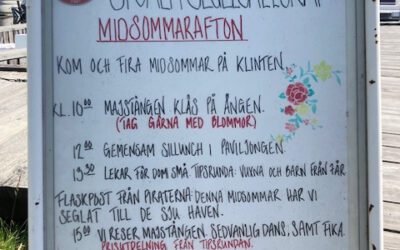 MIDSOMMARAFTON
KOM OCH FIRA MIDSOMMAR PÅ KLINTEN
KL. 10⁰⁰ MAJSTÅNGEN KLÄS PÅ ÄNGEN.
(TAG GÄRNA MED BLOMMOR)
12⁰⁰ GEMENSAM SILLUNCH I PAVILJONGEN
13³⁰ LEKAR FÖR DOM SMÅ. TIPSRUNDA: VUXNA OCH BARN FRÅN 7 ÅR
FLASKPOST FRÅN PIRATERNA: DENNA MIDSOMMAR HAR VI
SEGLAT TILL DE SJU HAVEN.
15⁰⁰ VI RESER MAJSTÅNGEN. SEDVANLIG DANS, SAMT FIKA.
PRISUTDELNING FRÅN TIPSRUNDAN.